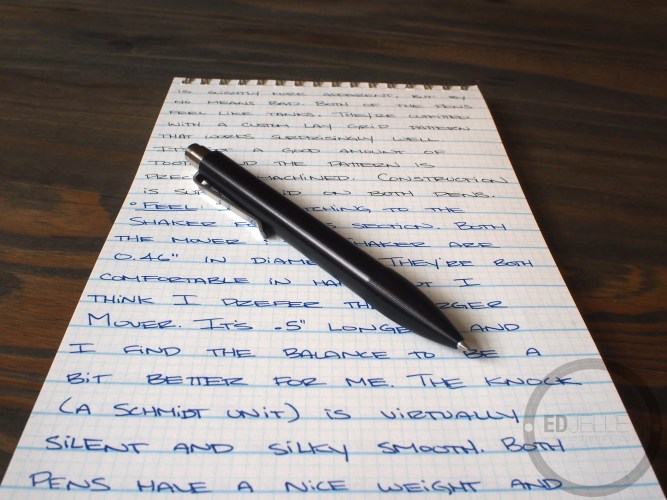 IS SLIGHTLY MORE DIFFERENT, BUT BY
NO MEANS BAD. BOTH OF THE PENS
FEEL LIKE TANKS. THEY'RE OUTFITTED
WITH A CUSTOM LAY GRIP PATTERN
THAT WORKS SURPRISINGLY WELL
A GOOD AMOUNT OF
THE PATTERN IS
MACHINED. CONSTRUCTION
IS ON BOTH PENS.
• FEEL: TO THE
SHAKER SECTION. BOTH
THE MOVER SHAKER ARE
0.46" IN THEY'RE BOTH
COMFORTABLE IN I
THINK I PREFER
MOVER. IT'S .5" AND
I FIND THE BALANCE TO BE A
BIT BETTER FOR ME. THE KNOCK
(A SCHMIDT UNIT) IS VIRTUALLY
SILENT AND SILKY SMOOTH. BOTH
PENS HAVE A NICE WEIGHT AND
EDJELLE